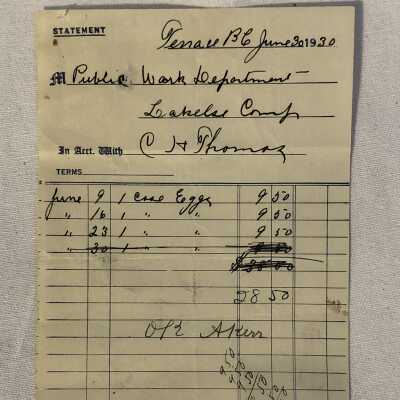 STATEMENT
Terrace BC June 30 1930
M Public Work Department
Lakelse Camp
In Acct. With C H Thomas
TERMS
June 9 1 case Eggs 9 50
" 16 1 " " 9 50
" 23 1 " " 9 50
" 30 1 " "
28 50
OK Akerr